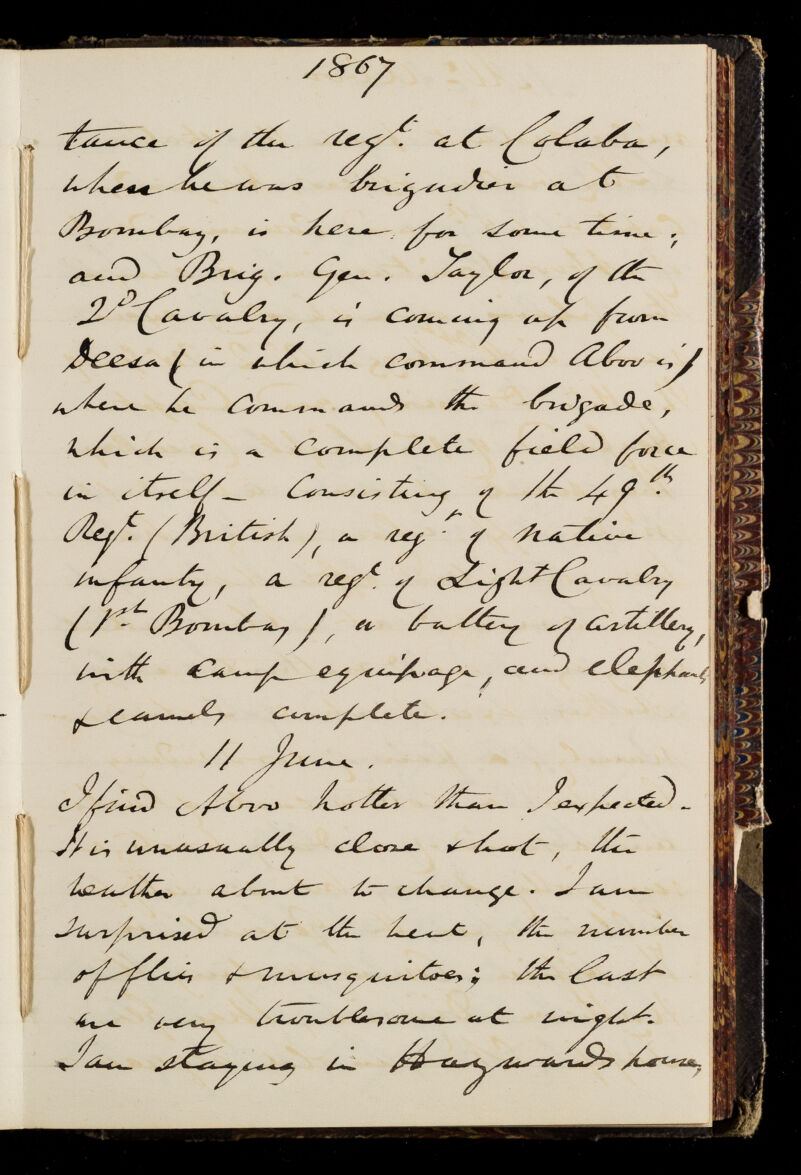 1867
tance of the regt. at Colaba,
when he was brigadier at
Bombay, is here for some time;
and Brig. Gen. Taylor, of the
2d Cavalry, is coming up from
Deesa (in which command Aboo is)
where he commands the brigade,
which is a complete field force
in itself - Consisting of the 49th.
Regt. (British), a regt. of native
infantry, a regt. of Light Cavalry
(1st Bombay), a battery of artillery,
with camp equipage, and elephants
& camels complete.
11 June.
I find Aboo hotter than I expected -
It is unusually close & hot, the
weather about to change. I am
surprised at the heat, the number
of flies & musquitoes; the last
are very troublesome at night.
I am staying in Haywards house,